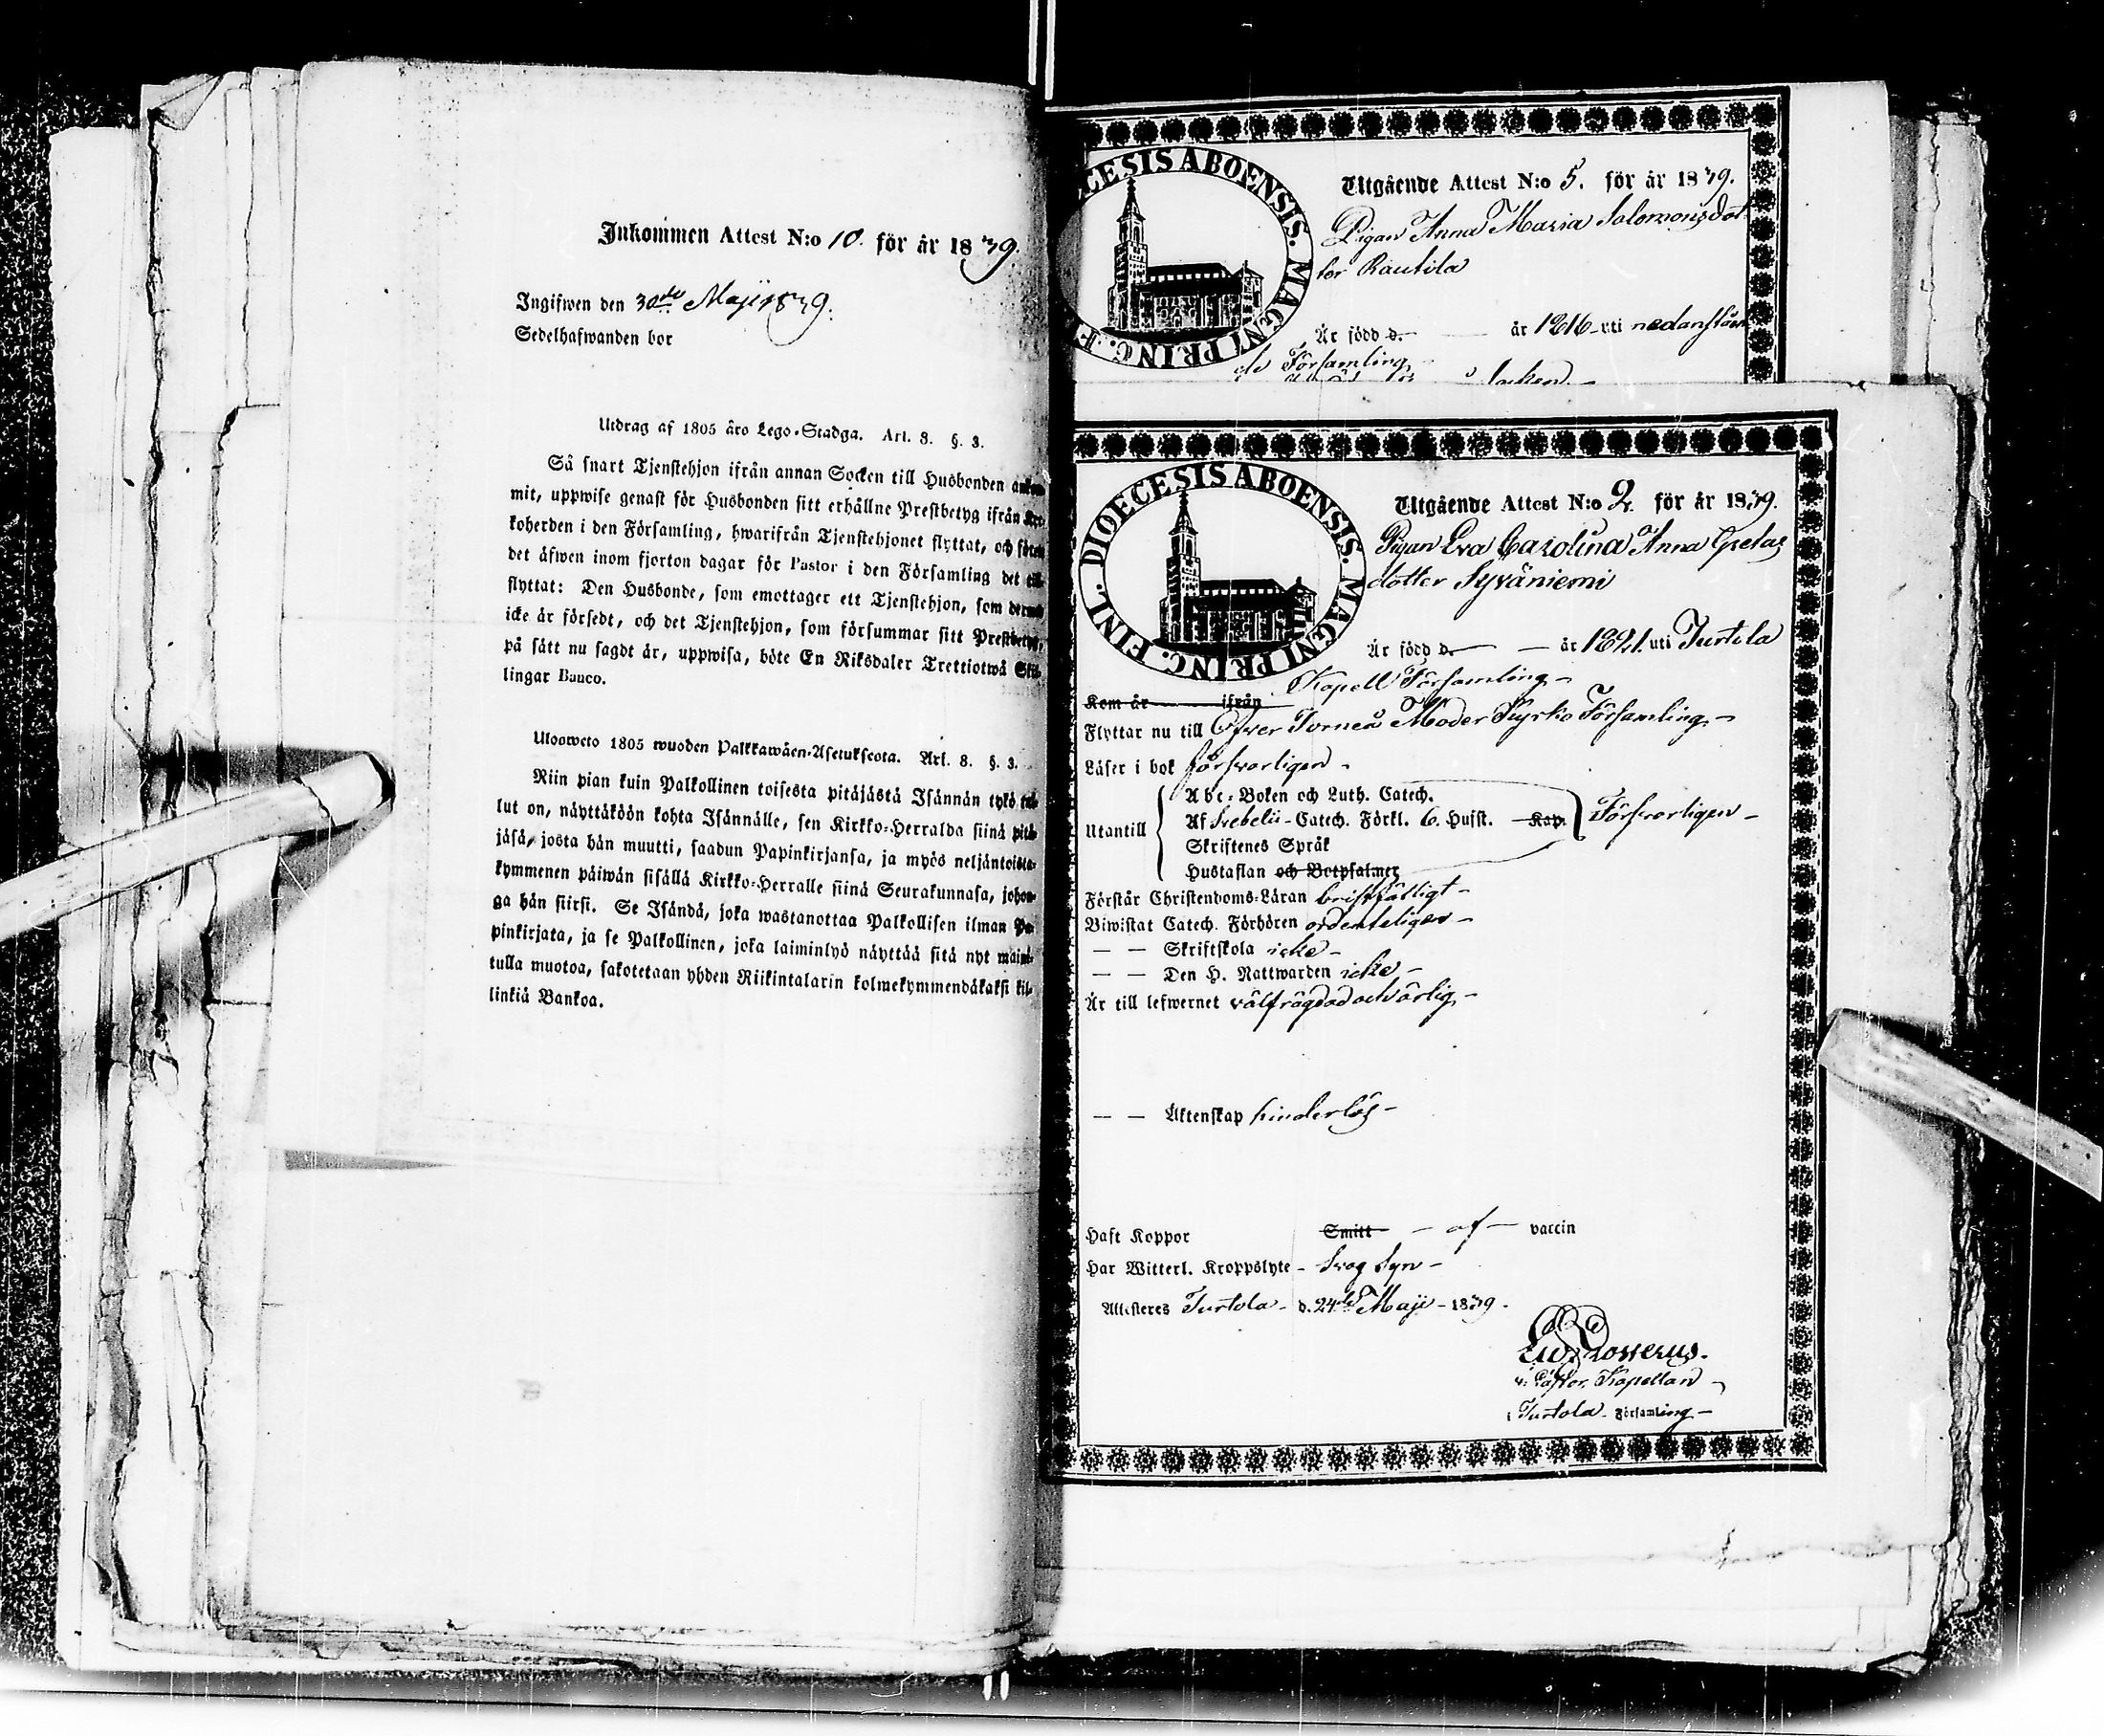 Inkommen Attest N:o 10. för år 1839.
Ingifwen den 30de Maji 1839.
Sedelhafwanden bor
Utdrag af 1805 års Lego-Stadga. Art. 8. §. 3.
Så snart Tjenstehjon ifrån annan Socken till Husbonden
mit, uppwise genast för Husbonden sitt erhållne Prestbetyg ifrån
koherden i den Församling, hwarifrån Tjenstehjonet flyttat, och
det äfwen inom fjorton dagar för Pastor i den Församling det
flyttat: Den Husbonde, som emottager ett Tjenstehjon, som
icke är försedt, och det Tjenstehjon, som försummar sitt Prestbetyg,
på sätt nu sagdt är, uppwisa, böte En Riksdaler Trettiotwå Skil-
lingar Banco.
Ulosweto 1805 wuoden Palkkawäen-Asetuksesta. Art. 8. §. 3.
Niin pian kuin Palkollinen toisesta pitäjästä Isännän tykö tul-
lut on, näyttäköön kohta Isännälle, sen Kirkko-Herralda siinä pitä-
jäsä, josta hän muutti, saadun Papinkirjansa, ja myös neljäntoista-
kymmenen päiwän sisällä Kirkko-Herralle siinä Seurakunnasa, johon-
ga hän siirsi. Se Isändä, joka wastanottaa Palkollisen ilman Pa-
pinkirjata, ja se Palkollinen, joka laiminlyö näyttää sitä nyt maini-
tulla muotoa, sakotetaan yhden Riikintalarin kolmekymmendäkaksi kil-
linkiä Bankoa.
CESIS ABOENSIS. MAGNI PRINC. F
Utgående Attest N:o 5. för år 1839.
Pigan Anna Maria Salomonsdot
ter Rautila
Är född d. år 1816 uti nedanståen
de Församling
DIOECESIS ABOENSIS. MAGNI PRINC. FINL.
Utgående Attest N:o 2. för år 1839.
Pigan Eva Carolina Anna Gretas
dotter Syväniemi
Är född d. år 1821. uti Turtola
Kapell Församling
Kom år ifrån
Flyttar nu till Öfver Torneå Moder Kyrko Församling
Läser i bok försvarligen
Utantill
Abc-Boken och Luth. Catech.
Af Svebelii Catech. Förkl. 6. Hufst. Kap.
Skriftenes Språk
Hustaflan och Botpsalmer
Försvarligen
Förstår Christendoms-Läran bristfälligt
Biwistat Catech. Förhören ordenteligen
— — Skriftskola icke
— — Den H. Nattwarden icke
Är till lefwernet välfrägdad och ärlig
— — Äktenskap hinderlös
Haft Koppor Smitt af vaccin
Har Witterl. Kroppslyte Svag Syn
Attesteras Turtola d. 24de Maji 1839.
v: Pastor, Kapellan
i Turtola Församling